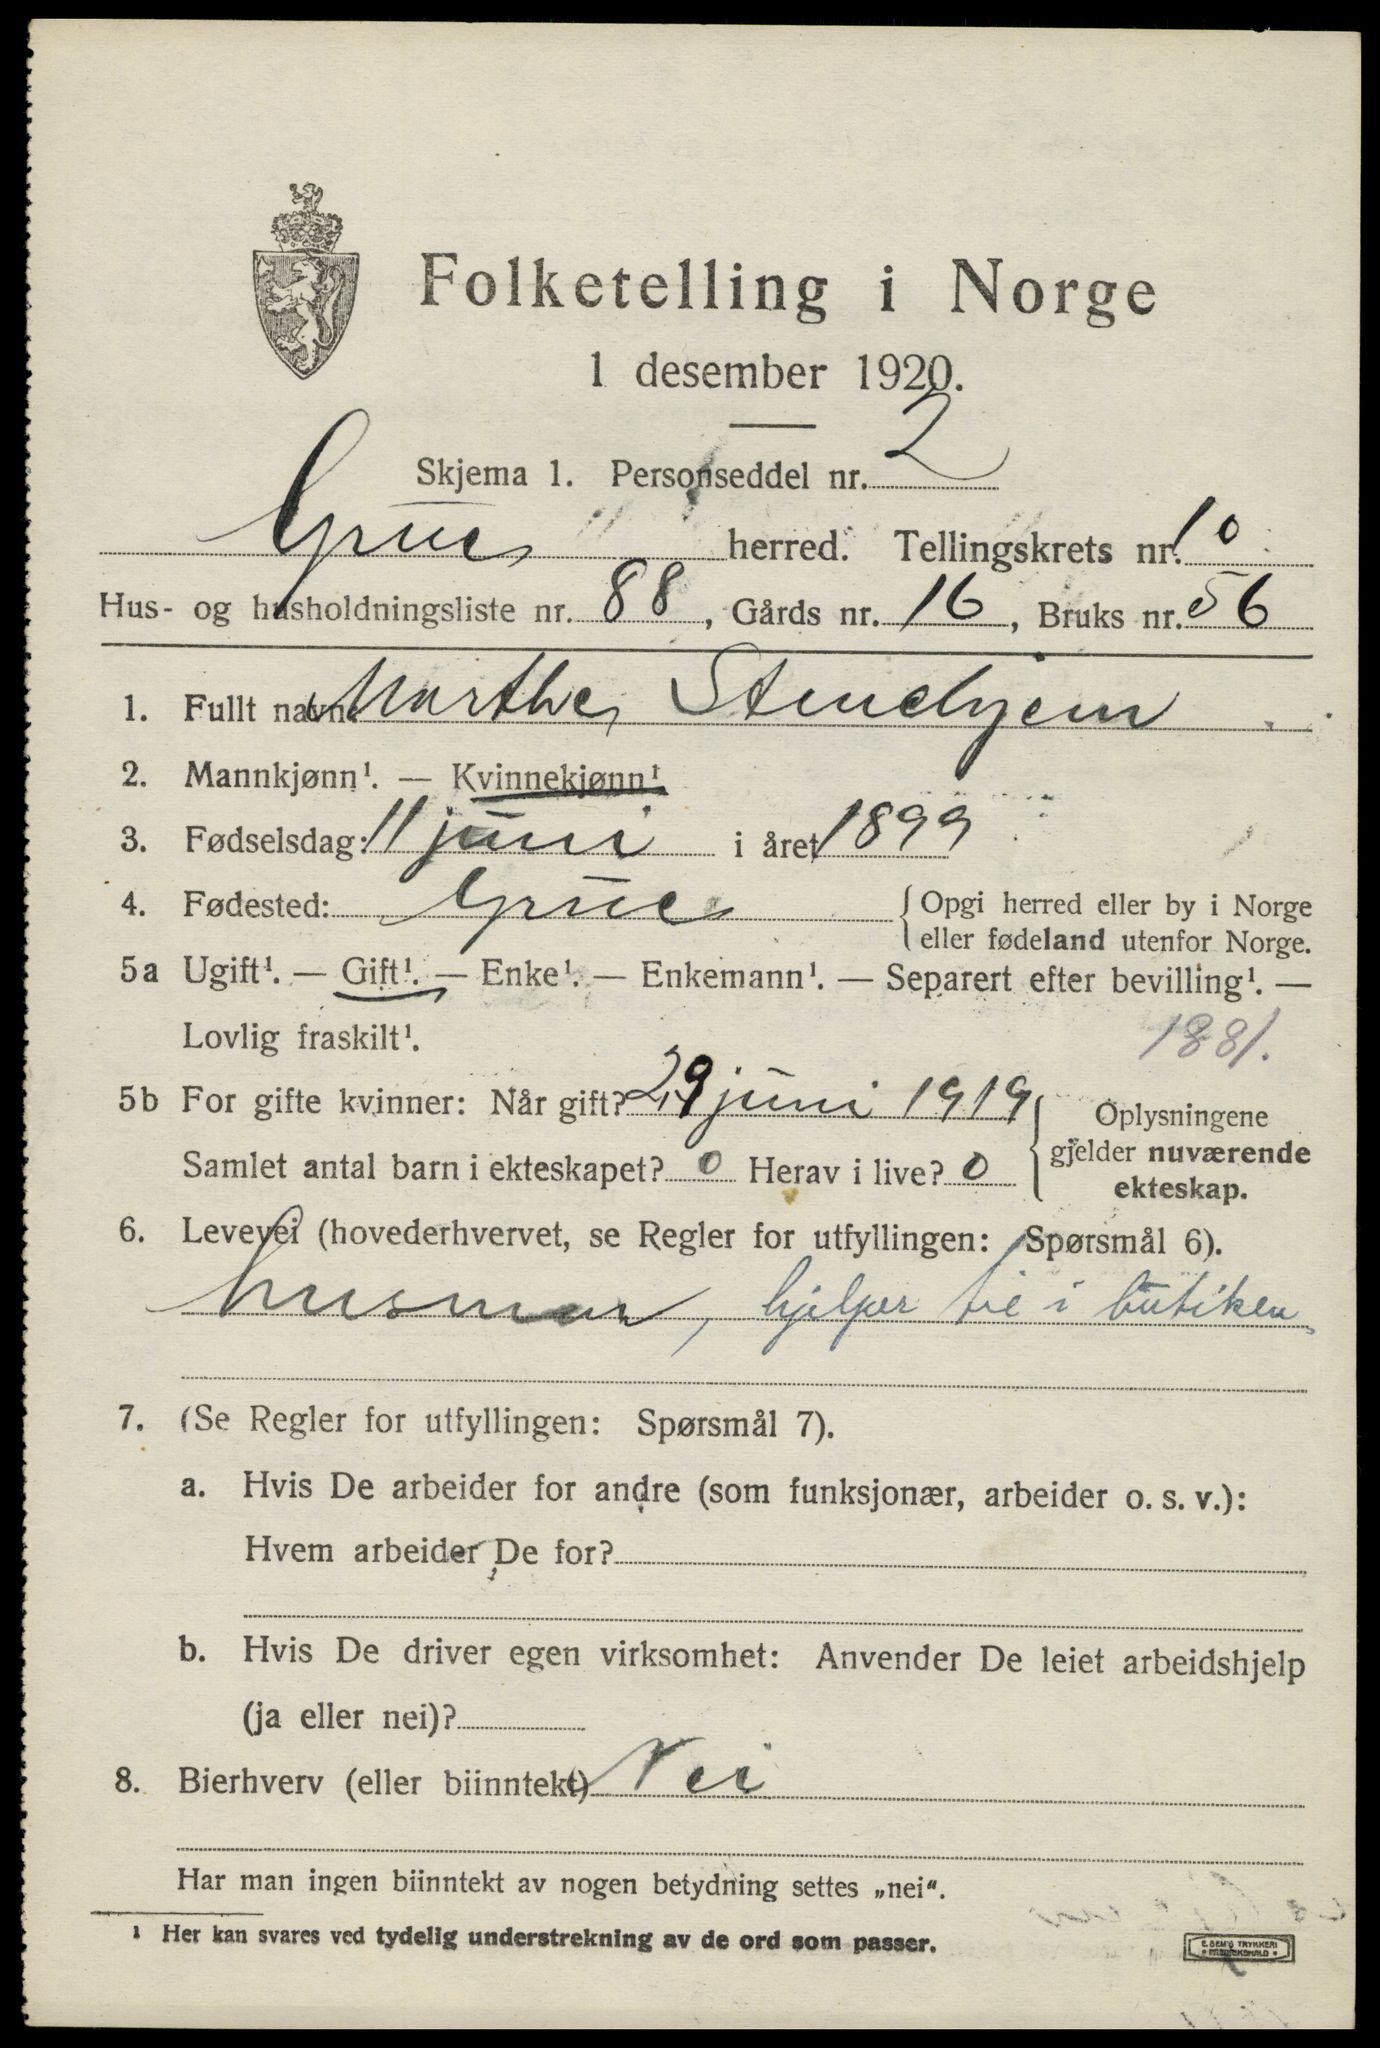 Folketelling i Norge
1 desember 1920.
Skjema 1. Personseddel nr. 2
Grue herred. Tellingskrets nr. 10
Hus- og husholdningsliste nr. 88, Gårds nr. 16, Bruks nr. 56
1. Fullt navn: Marthe Stenehjem
2. Mannkjønn¹. — Kvinnekjønn¹
3. Fødselsdag: 11 juni i året 1899
4. Fødested: Grue { Opgi herred eller by i Norge
eller fødeland utenfor Norge.
5a Ugift¹. — Gift¹. — Enke¹. — Enkemann¹. — Separert efter bevilling¹. —
Lovlig fraskilt¹. 1881.
5b For gifte kvinner: Når gift? 29 juni 1919 { Oplysningene
Samlet antal barn i ekteskapet? 0 Herav i live? 0 gjelder nuværende
ekteskap.
6. Levevei (hovederhvervet, se Regler for utfyllingen: Spørsmål 6).
husmor, hjelper til i butiken
7. (Se Regler for utfyllingen: Spørsmål 7).
a. Hvis De arbeider for andre (som funksjonær, arbeider o. s. v.):
Hvem arbeider De for?
b. Hvis De driver egen virksomhet: Anvender De leiet arbeidshjelp
(ja eller nei)?
8. Bierhverv (eller biinntekt) Nei
Har man ingen biinntekt av nogen betydning settes „nei".
¹ Her kan svares ved tydelig understrekning av de ord som passer.
E. SEM'S TRYKKERI
FREDRIKSHALD